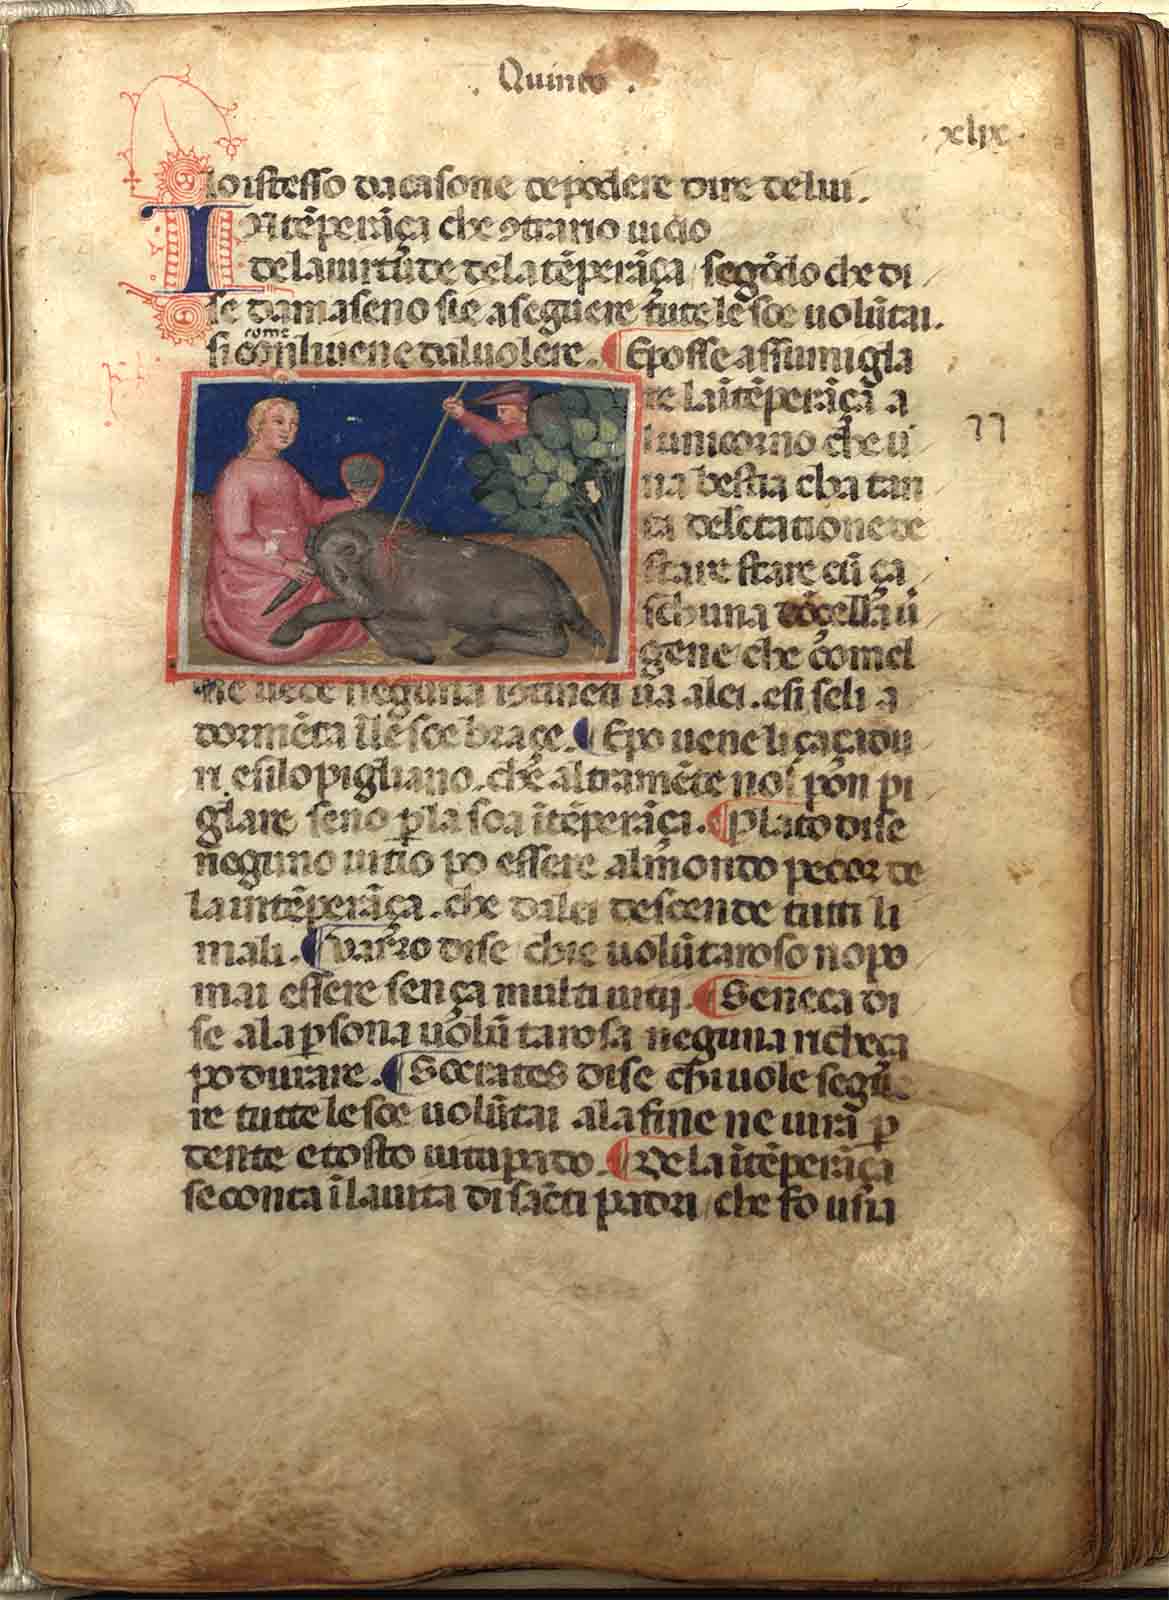 . Quinto .
xlix
lo istesso da casone de podere dire de lui.
INtēperāça che ɔtrario uicio
de la uirtude de la tēperāça / segōdo che di
se damaseno sie a seguere tute le soe uolūtai.
come
si com li uene dal uolere. ¶ E posse assumigla
re la ītēperāça a
lunicorno che u
na bestia cha tan
ta deletatione de
stare stare cū ça
schuna dōcella ū
gene / che comel
ne uede neguna īɔtineti ua a lei. e si seli a
dormēta ī le soe braçe. ¶ E po uene li caçadu
ri e si lo pigliano. che altramēte nol pon pi
glare seno p̱ la soa ītēperāça. ¶ Plato dise
neguno uitio po essere al mondo pecor de
la intēperāça. che da lei descende tutti li
mali. ¶ Varro dise chi e uolūtaroso no po
mai essere sença multi uitij. ¶ Seneca di
se a la p̱sona uolūtarosa neguna richeça
po durare. ¶ Socrates dise chi uole segue
re tutte le soe uolūtai a la fine ne uirā p̱
dente e tosto uitupado. ¶ De la ītēperāça
se conta ī la uita di sācti padri / che fo una
77